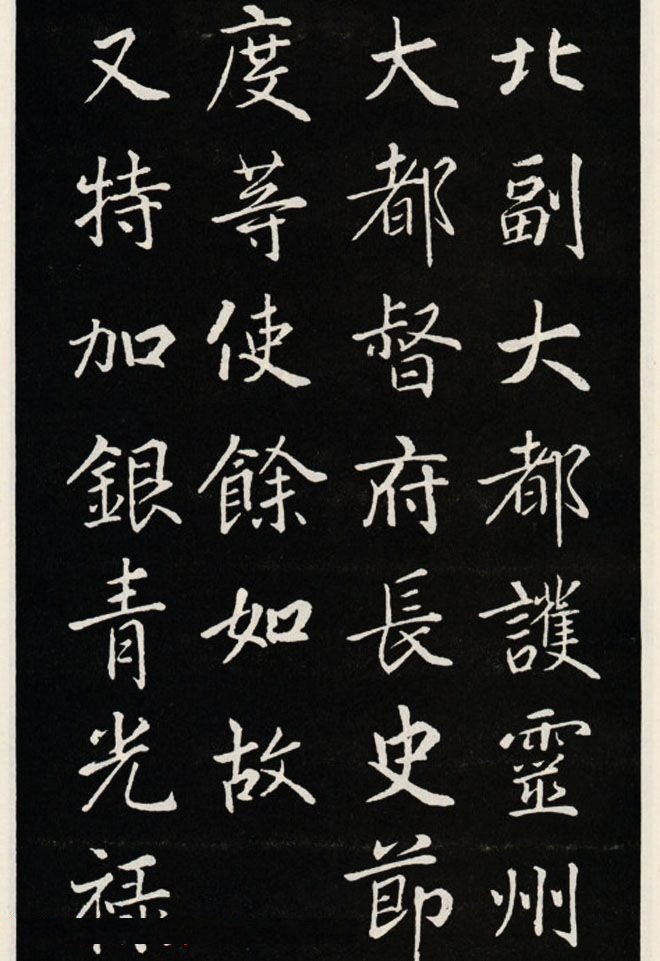 北副大都護靈州
大都督府長史節
度等使餘如故
又特加銀青光祿